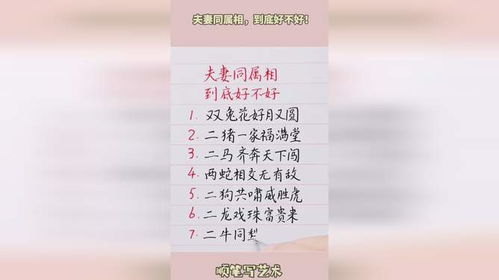 夫妻同属相，到底好不好！
夫妻同属相
到底好不好
1. 双兔花好月又圆
2. 二猪一家福满堂
3. 二马齐奔天下闯
4. 两蛇相交无有敌
5. 二狗共啸威胜虎
6. 二龙戏珠富贵来
7. 二牛同犁
顺笔写艺术